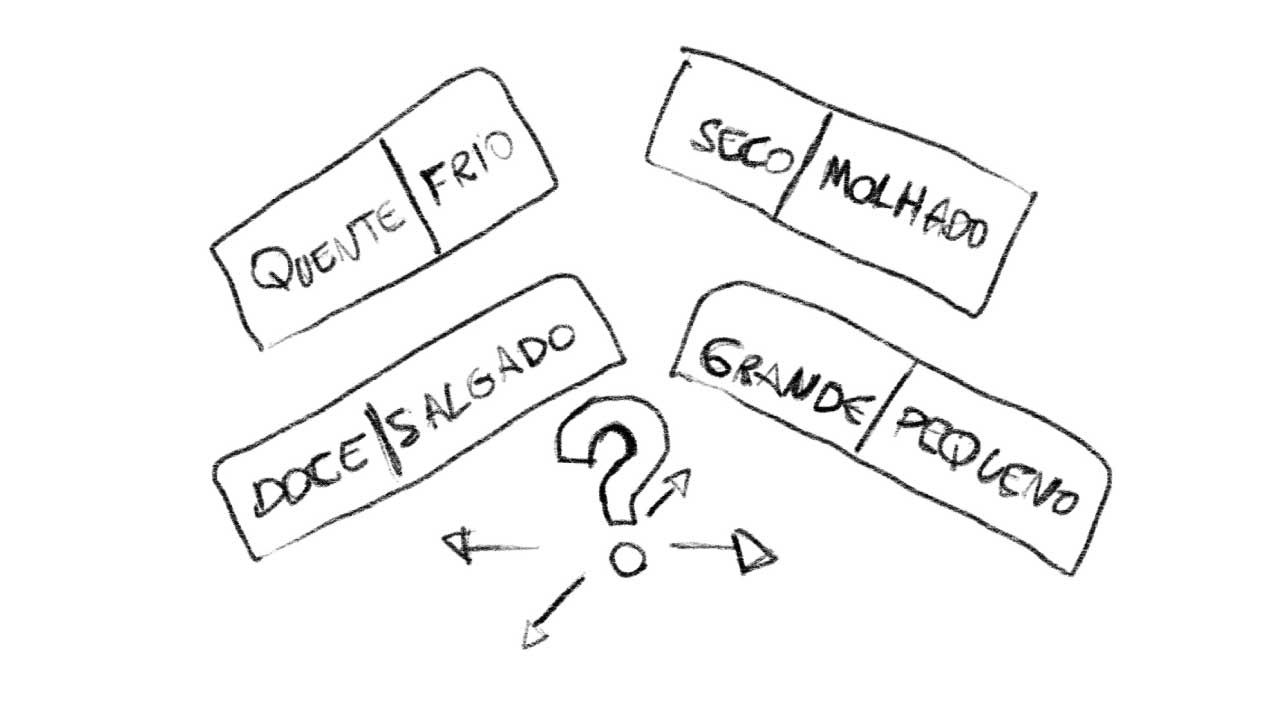 QUENTE FRIO
SECO MOLHADO
DOCE SALGADO
GRANDE PEQUENO
?